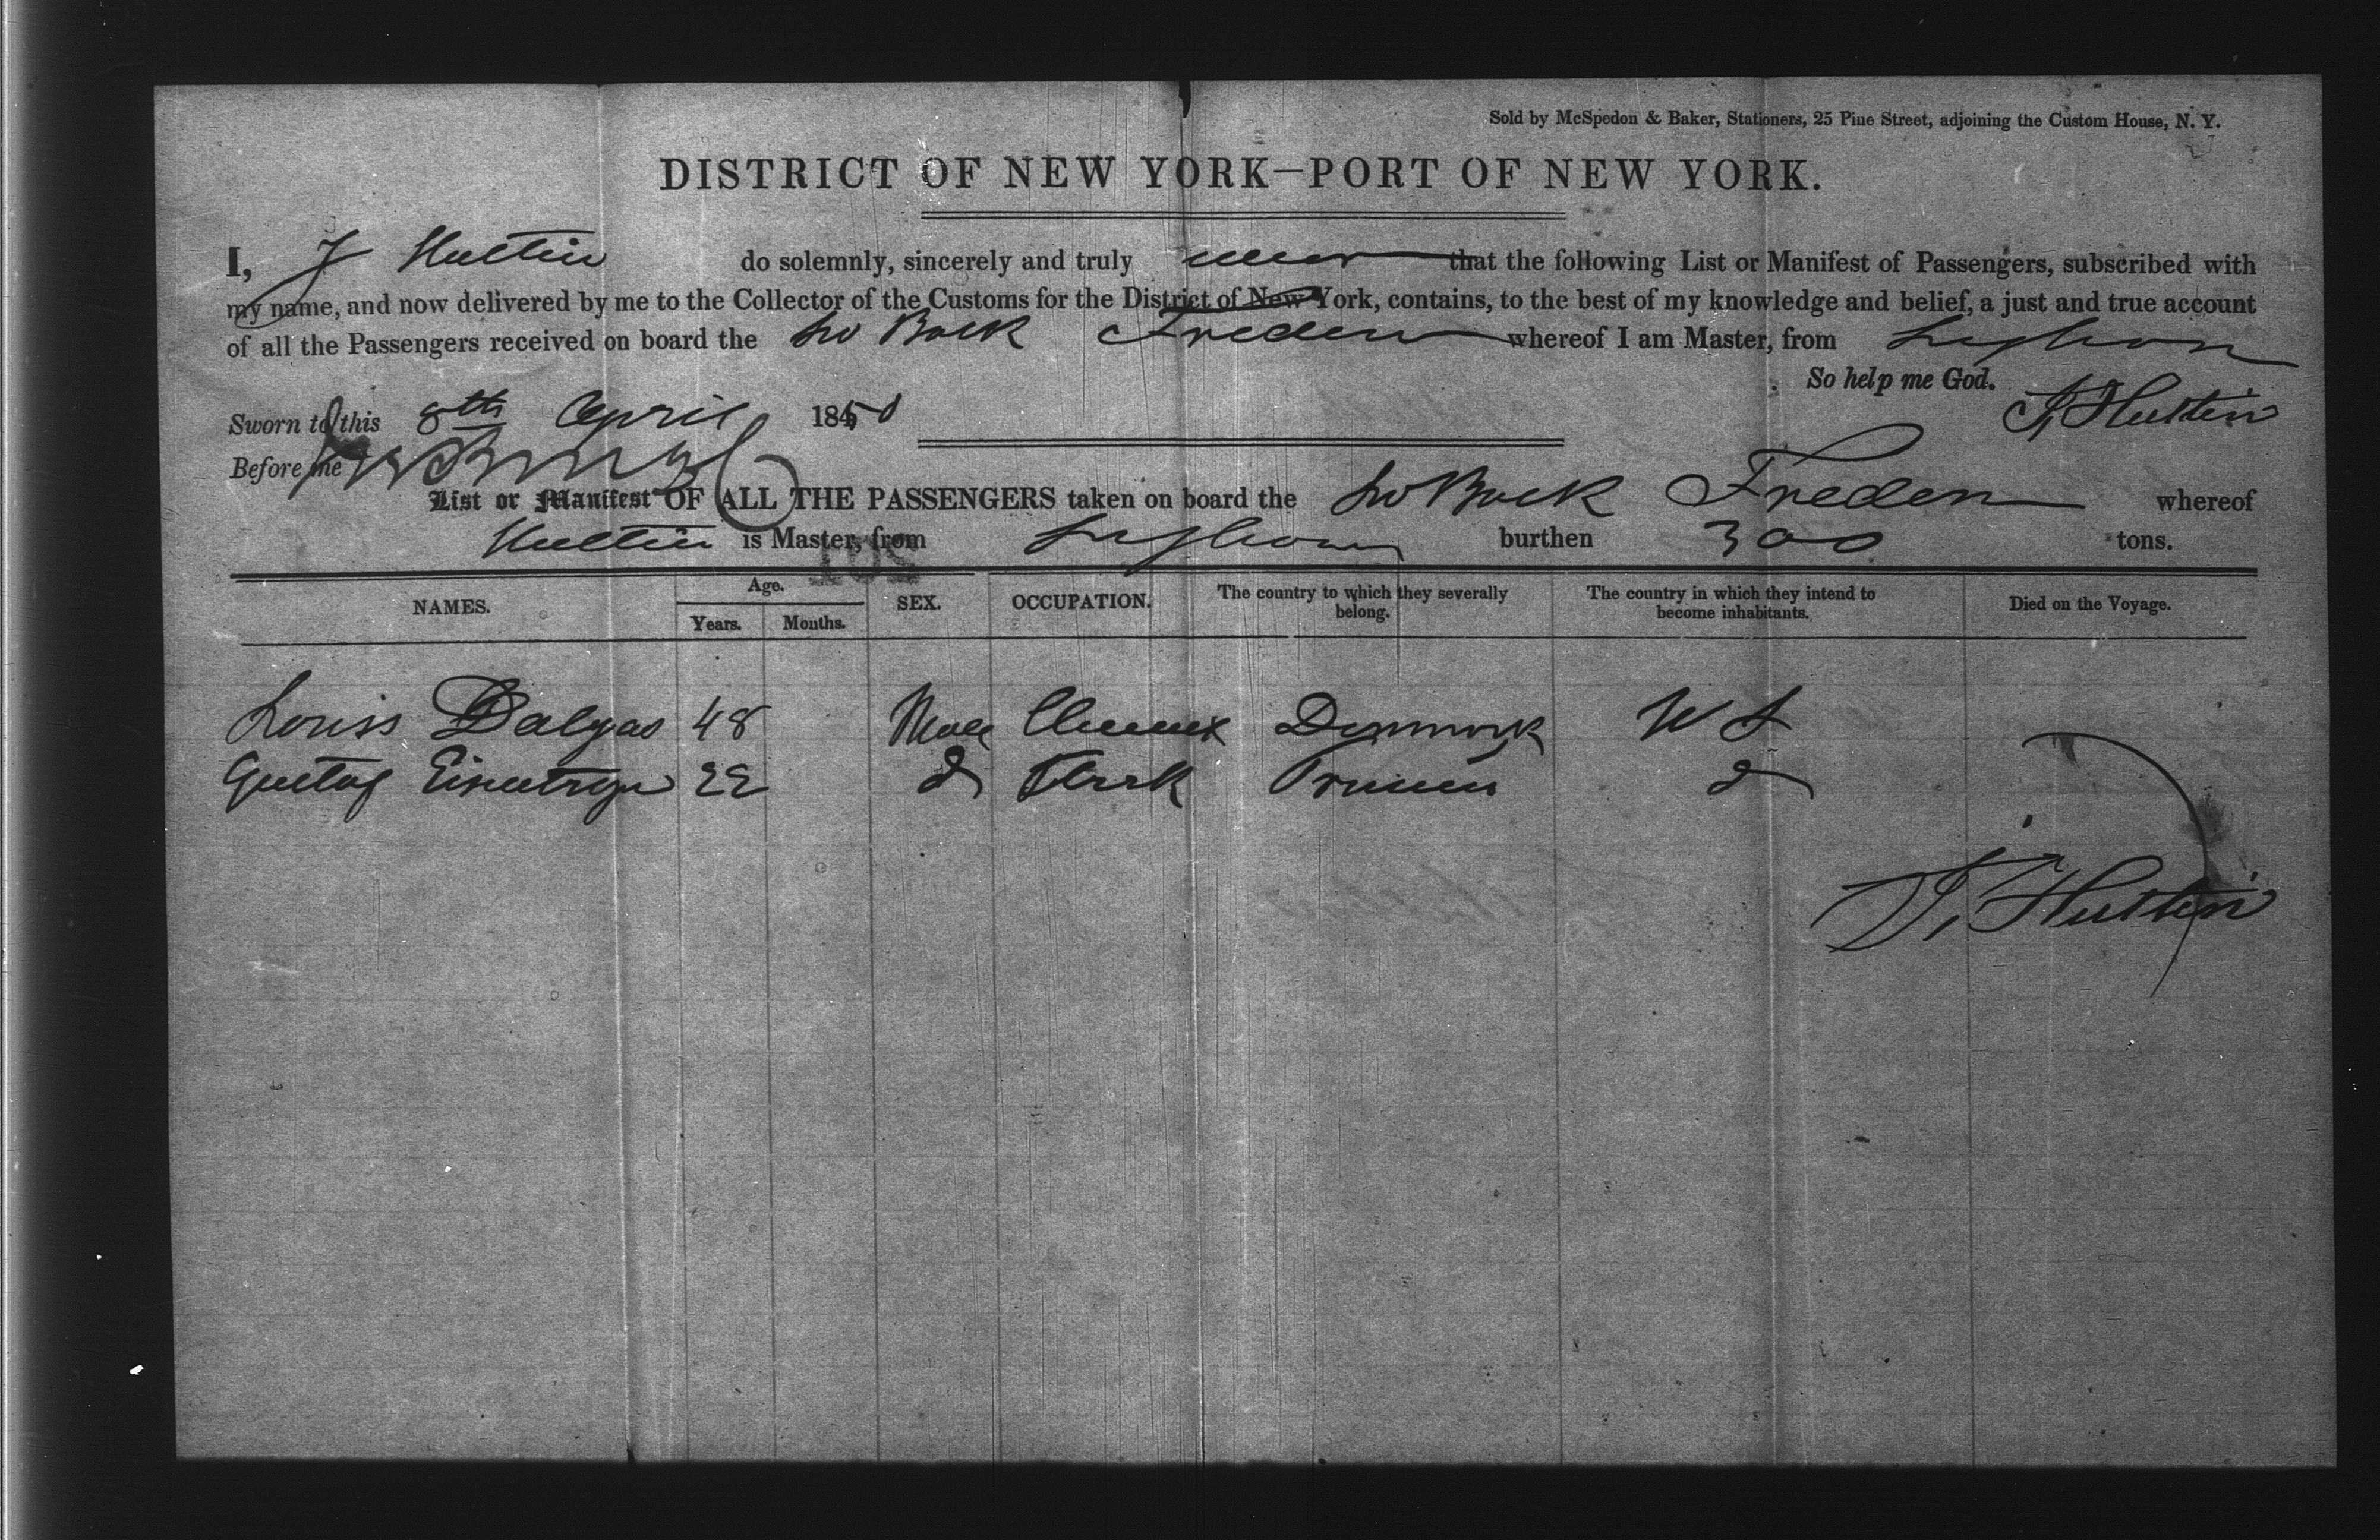 Sold by McSpedon & Baker, Stationers, 25 Pine Street, adjoining the Custom House, N. Y.
DISTRICT OF NEW YORK—PORT OF NEW YORK.
I, J Hultin do solemnly, sincerely and truly swear that the following List or Manifest of Passengers, subscribed with
my name, and now delivered by me to the Collector of the Customs for the District of New York, contains, to the best of my knowledge and belief, a just and true account
of all the Passengers received on board the Sw Bark Freden whereof I am Master, from Leghorn
So help me God.
Sworn to this 8th April 1850 J, Hultin
Before me
List or Manifest OF ALL THE PASSENGERS taken on board the Sw Bark Freden whereof
Hultin is Master, from Leghorn burthen 300 tons.
NAMES. Age. Years. Months. SEX. OCCUPATION. The country to which they severally belong. The country in which they intend to become inhabitants. Died on the Voyage.
Louis Dalgas 48 Male Denmark U S
Gustaf 22 do Clerk Prussia do
J, Hultin